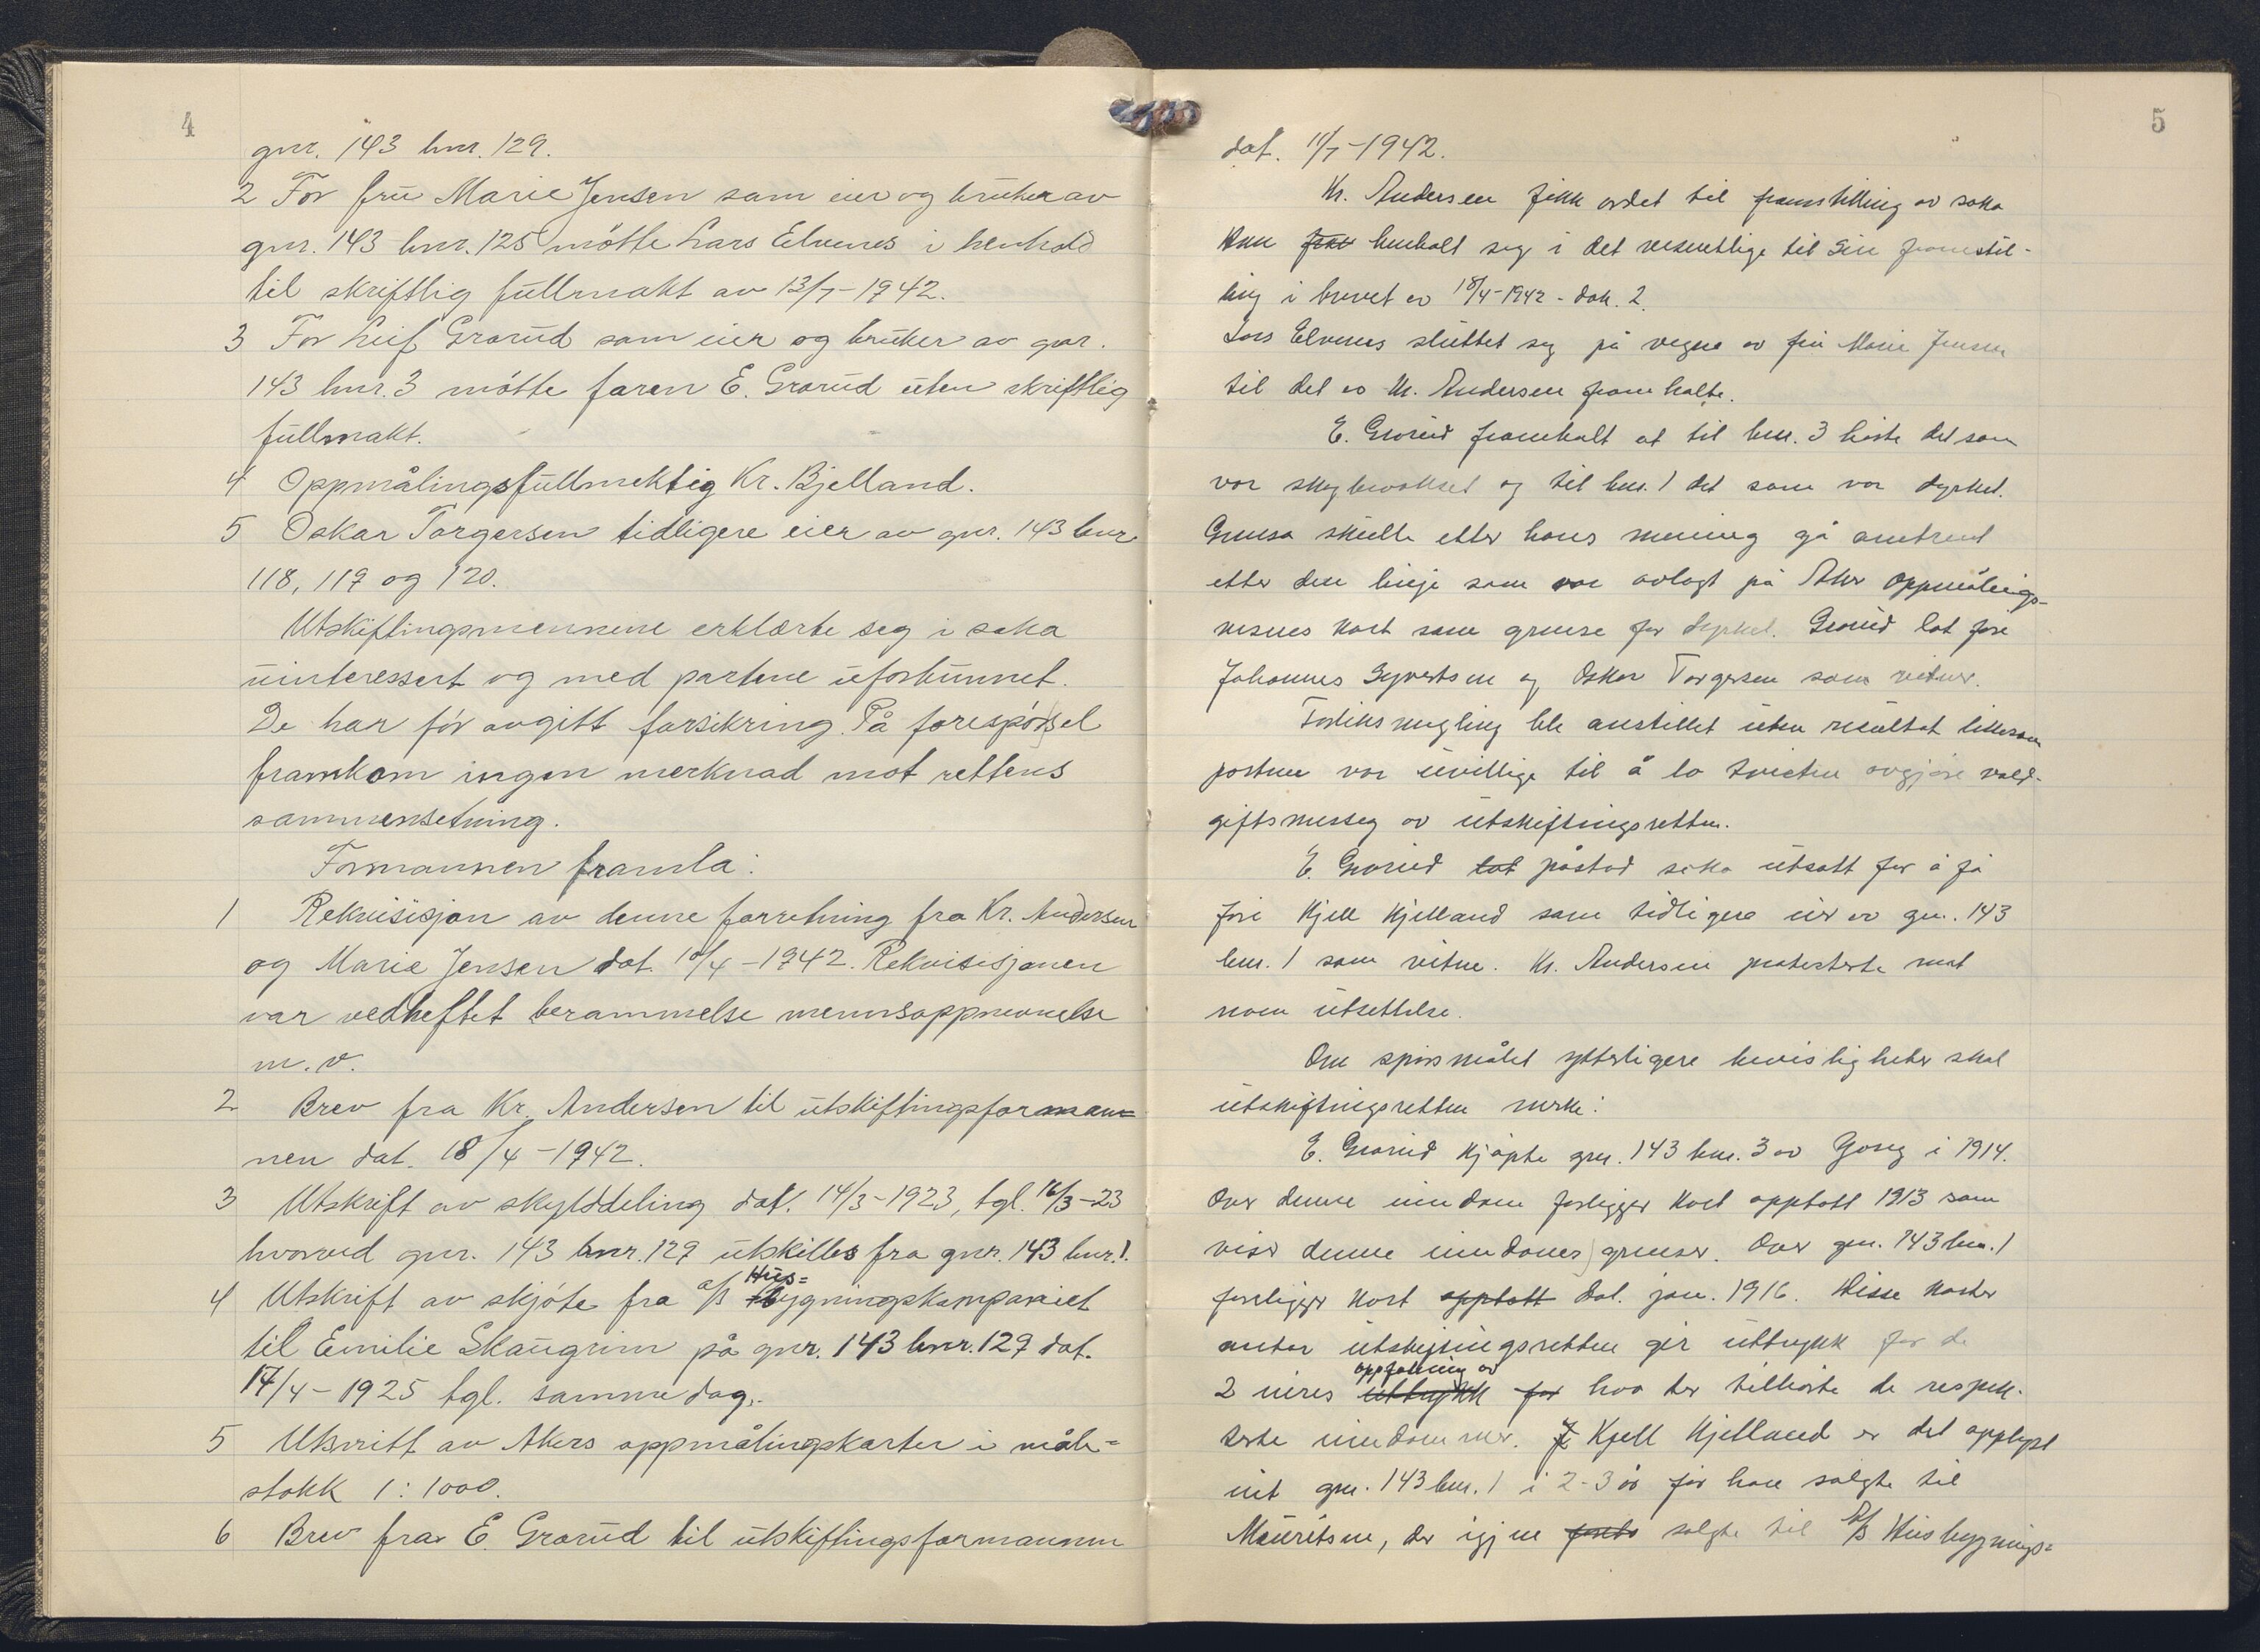 4
gnr. 143 bnr. 129.
2 For fru Marie Jensen som eier og bruker av
gnr. 143 bnr. 125 møtte Lars Elvenes i henhold
til skriftlig fullmakt av 13/7-1942.
3 For Leif Grorud som eier og bruker av gnr.
143 bnr. 3 møtte faren E. Grorud uten skriftlig
fullmakt.
4 Oppmålingsfullmektig Kr. Bjelland.
5 Oskar Torgersen tidligere eier av gnr. 143 bnr
118, 119 og 120.
Utskiftingsmennene erklærte seg i saka
uinteressert og med partene uforbunnet.
De har før avgitt forsikring. På forespørsel
framkom ingen merknad mot rettens
sammensetning.
Formannen framla:
1 Rekvisisjon av denne forretning fra Kr. Andersen
og Marie Jensen dat. 10/4-1942. Rekvisisjonen
var vedheftet berammelse mennsoppnevnelse
m.v.
2 Brev fra Kr. Andersen til utskiftingsforman=
nen dat. 18/4-1942.
3 Utskrift av skylddeling dat. 14/3-1923, tgl. 16/3-23
hvorved gnr. 143 bnr. 129 utskilles fra gnr. 143 bnr. 1.
4 Utskrift av skjøte fra a/s Hus=bygningskompaniet
til Emilie Skaugrim på gnr. 143 bnr. 129 dat.
17/4-1925 tgl. samme dag.
5 Utsnitt av Akers oppmålingskarter i måle=
stokk 1:1000.
6 Brev fra E. Grorud til utskiftingsformannen
5
dat. 11/7-1942.
Kr. Andersen fikk ordet til framstilling av saka
Han henholt seg i det vesentlige til sin framstil-
ling i brevet av 18/4-1942 - dok. 2.
Lars Elvenes sluttet seg på vegne av fru Marie Jensen
til det av Kr. Andersen framholte.
E. Grorud framholt at til bnr. 3 hørte det som
var skogbevokset og til bnr. 1 det som var dyrket.
Grensa skulle etter hans mening gå omtrent
etter den linje som var avlagt på Aker oppmålings-
vesens kart som grense for dyrket. Grorud lot føre
Johannes Syvertsen og Oskar Torgersen som vitner.
Forliksmegling ble anstillet uten resultat likesom
partene var uvillige til å la tvisten avgjøre vold-
giftsmessig av utskiftingsretten.
E. Grorud lot påstod saka utsatt for å få
føre Kjell Kjelland som tidligere eier av gnr. 143
bnr. 1 som vitne. Kr. Andersen protesterte mot
noen utsettelse.
Om spørsmålet ytterligere bevisligheter skal
utskiftingsretten merke:
E. Grorud kjøpte gnr. 143 bnr. 3 av i 1914.
Over denne eiendom foreligger kart opptatt 1913 som
viser denne eiendoms grenser. Over gnr. 143 bnr. 1
foreligger kart opptatt dat. jan. 1916. Disse karter
antar utskiftingsretten gir uttrykk for de
2 eieres uttrykk for oppfatning av hva der tilhørte de respek-
terte eiendommer. Kjell Kjelland er det opplyst
eiet gnr. 143 bnr. 1 i 2-3 år før han solgte til
Mauritsen, der igjen solgte til A/S Husbygnings=